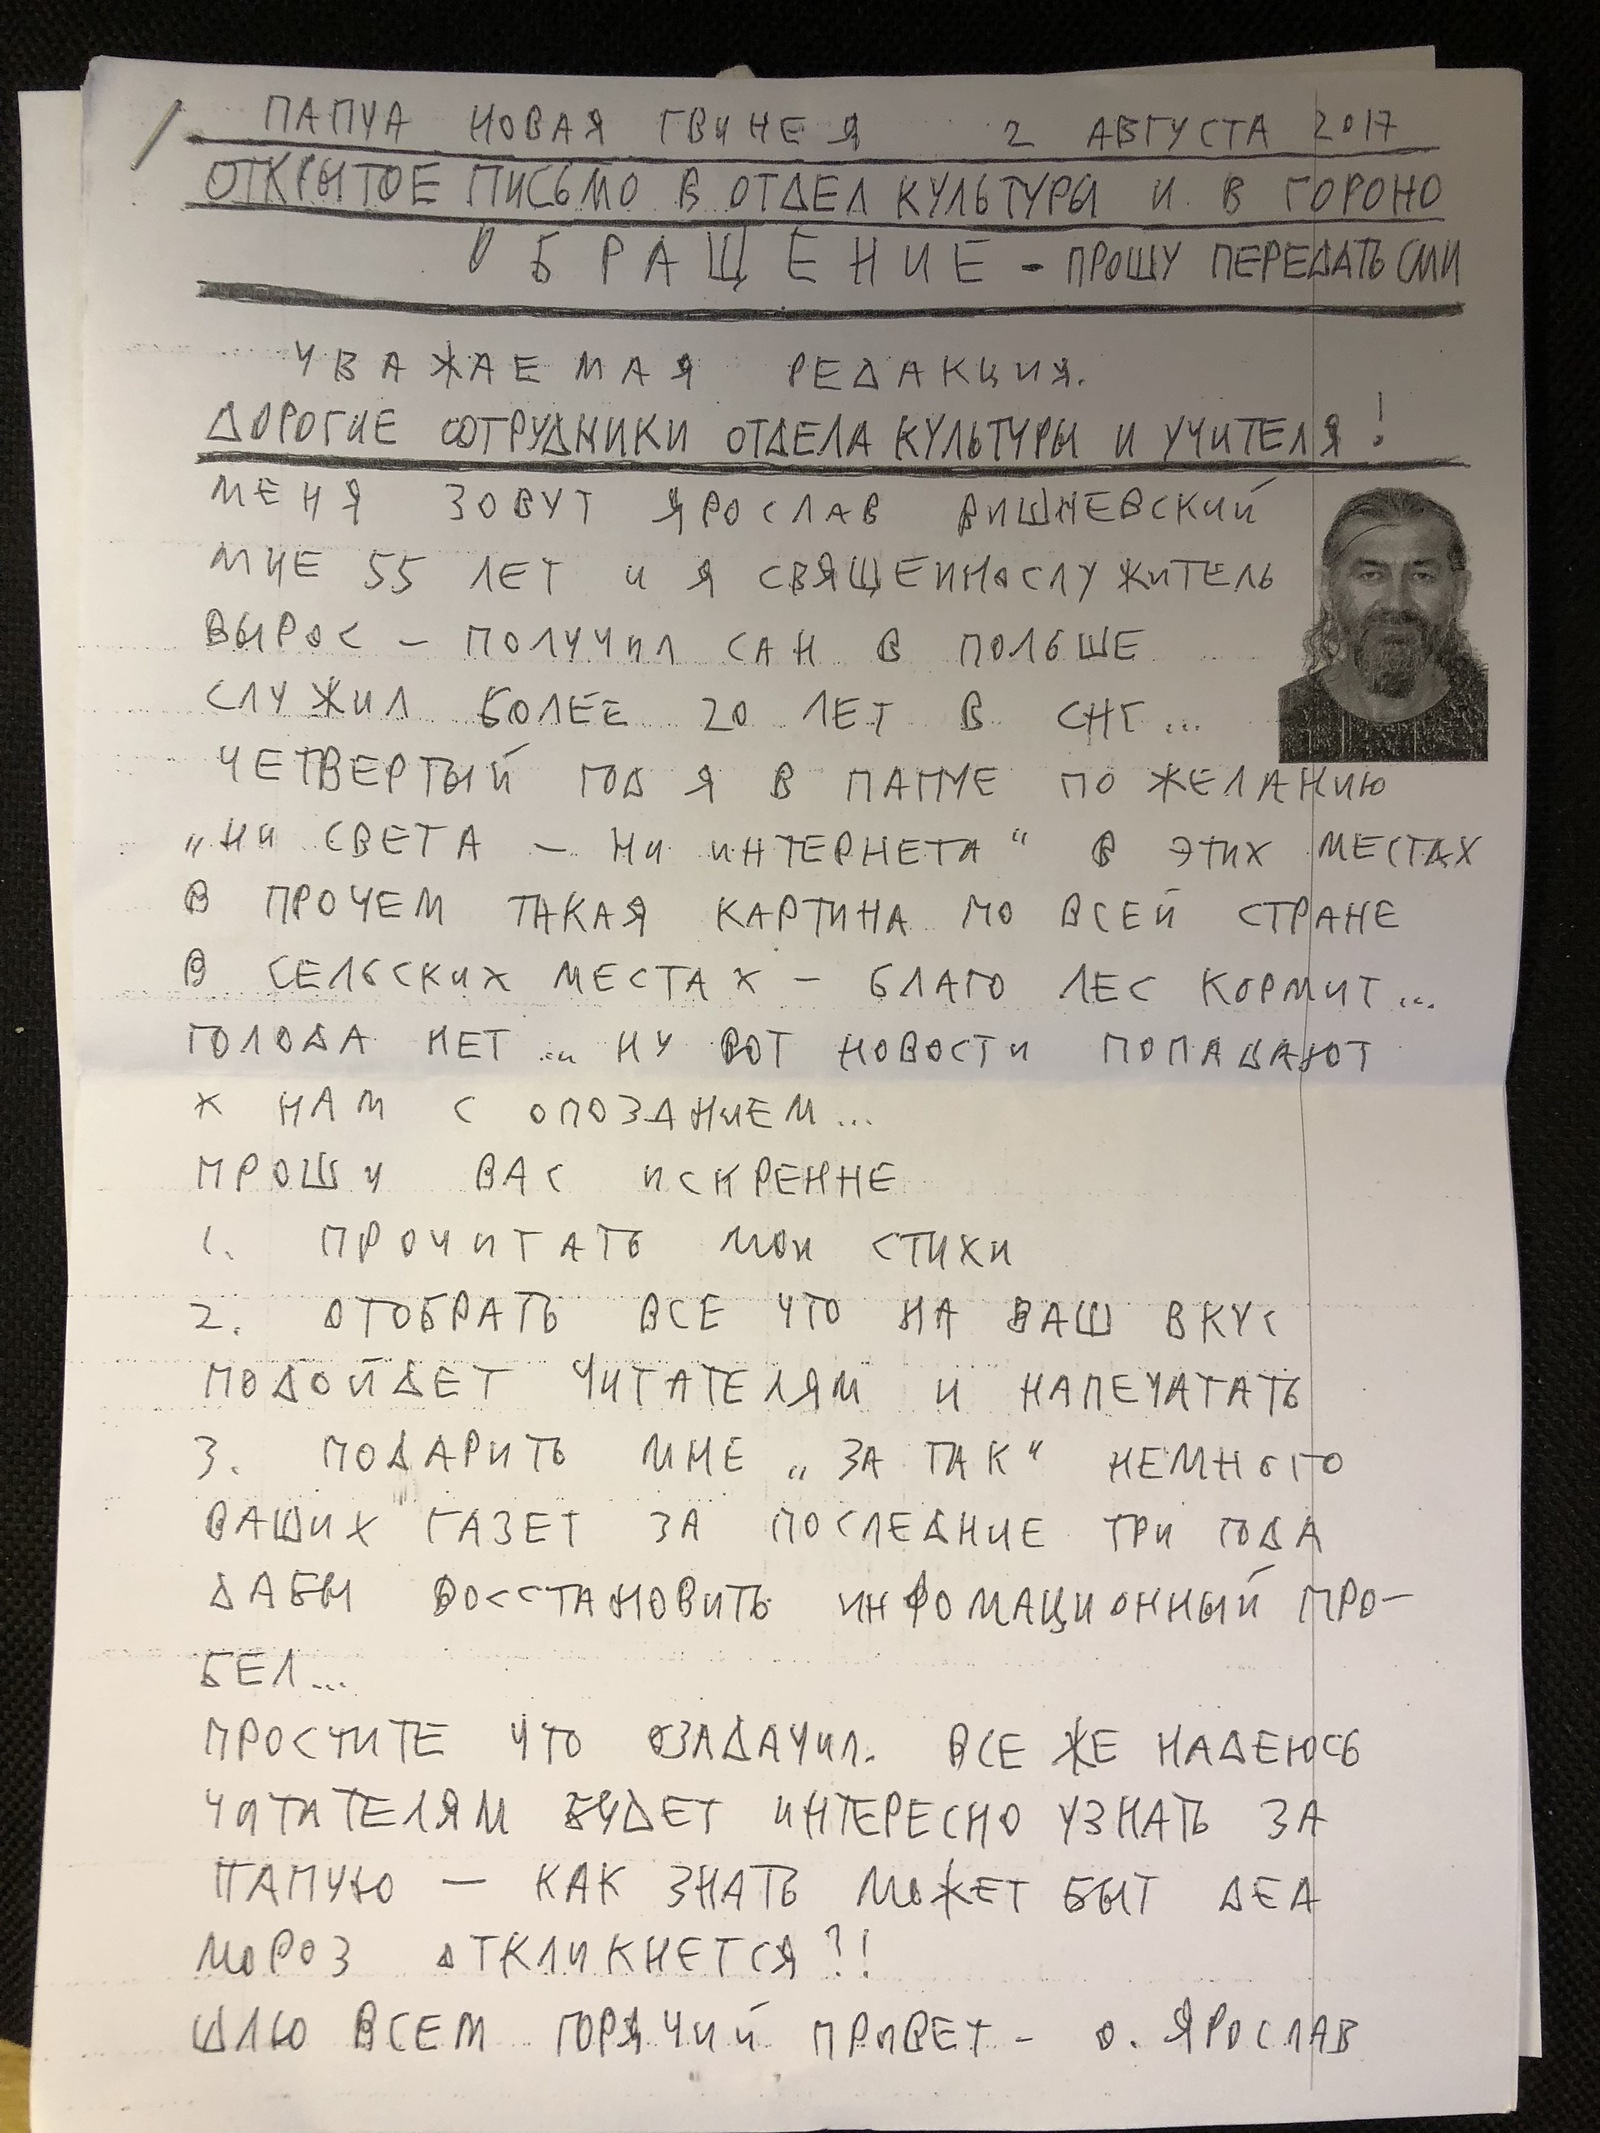 ПАПУА НОВАЯ ГВИНЕЯ 2 АВГУСТА 2017
ОТКРЫТОЕ ПИСЬМО В ОТДЕЛ КУЛЬТУРЫ И В ГОРОНО
ОБРАЩЕНИЕ - ПРОШУ ПЕРЕДАТЬ СМИ
УВАЖАЕМАЯ РЕДАКЦИЯ.
ДОРОГИЕ СОТРУДНИКИ ОТДЕЛА КУЛЬТУРЫ И УЧИТЕЛЯ!
МЕНЯ ЗОВУТ ЯРОСЛАВ ВИШНЕВСКИЙ
МНЕ 55 ЛЕТ И Я СВЯЩЕННОСЛУЖИТЕЛЬ
ВЫРОС – ПОЛУЧИЛ САН В ПОЛЬШЕ
СЛУЖИЛ БОЛЕЕ 20 ЛЕТ В СНГ...
ЧЕТВЕРТЫЙ ГОД Я В ПАПУЕ ПО ЖЕЛАНИЮ
„НИ СВЕТА – НИ ИНТЕРНЕТА“ В ЭТИХ МЕСТАХ
В ПРОЧЕМ ТАКАЯ КАРТИНА ПО ВСЕЙ СТРАНЕ
В СЕЛЬСКИХ МЕСТАХ – БЛАГО ЛЕС КОРМИТ...
ГОЛОДА НЕТ... НУ ВОТ НОВОСТИ ПОПАДАЮТ
К НАМ С ОПОЗДАНИЕМ...
ПРОШУ ВАС ИСКРЕННЕ
1. ПРОЧИТАТЬ МОИ СТИХИ
2. ОТОБРАТЬ ВСЕ ЧТО НА ВАШ ВКУС
ПОДОЙДЕТ ЧИТАТЕЛЯМ И НАПЕЧАТАТЬ
3. ПОДАРИТЬ МНЕ „ЗА ТАК“ НЕМНОГО
ВАШИХ ГАЗЕТ ЗА ПОСЛЕДНИЕ ТРИ ГОДА
ДАБЫ ВОССТАНОВИТЬ ИНФОМАЦИОННЫЙ ПРО-
БЕЛ...
ПРОСТИТЕ ЧТО ОЗАДАЧИЛ. ВСЕ ЖЕ НАДЕЮСЬ
ЧИТАТЕЛЯМ БУДЕТ ИНТЕРЕСНО УЗНАТЬ ЗА
ПАПУЮ – КАК ЗНАТЬ МОЖЕТ БЫТ ДЕД
МОРОЗ ОТКЛИКНЕТСЯ?!
ШЛЮ ВСЕМ ГОРЯЧИЙ ПРИВЕТ – О. ЯРОСЛАВ